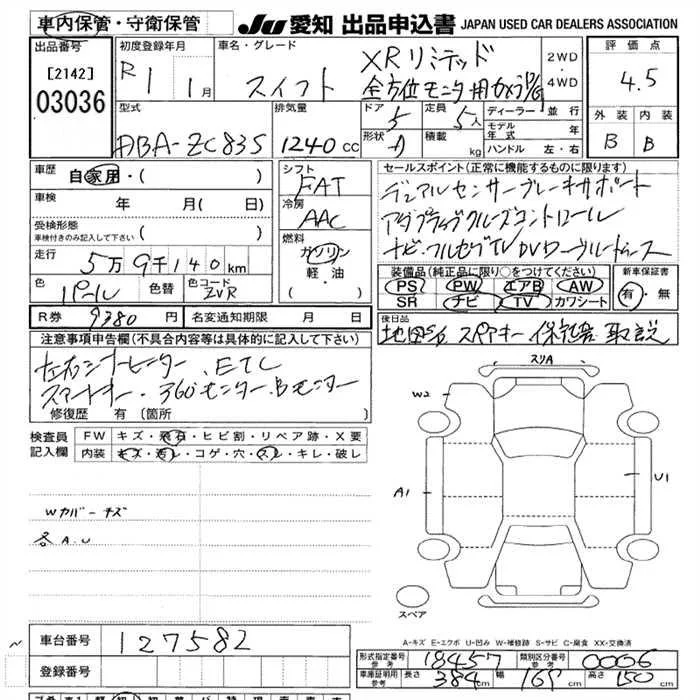 車内保管・守衛保管
JU 愛知 出品申込書 JAPAN USED CAR DEALERS ASSOCIATION
出品番号
[2142]
03036
初度登録年月
R1 1月
車名・グレード
スイフト
XRリミテッド
全方位モニタ用カメラP/G
2WD
4WD
評価点
4.5
外装 内装
B B
型式
DBA-ZC83S
排気量
1240 cc
ドア 5 定員 5人
形状 積載 kg
ディーラー・並行
モデル年式 年
ハンドル 左・右
車歴 自家用・( )
車検 年 月( 日)
受検形態
車検付きのみ記入して下さい ( )
走行 5万9千140km
色 パール 色替 色コード ZVR
シフト
FAT
冷房
AAC
燃料
ガソリン
軽・油
セールスポイント(正常に機能するものに限ります)
デュアルセンサーブレーキサポート
アダプティブクルーズコントロール
ナビ・フルセグTV DV
装備品(純正品に限り○をつけてください)
PS PW エアB AW
SR ナビ TV カワシート
新車保証書
有・無
R券 9380円 名変通知期限 月 日
後日品
スペアキー 保証書 取説
注意事項申告欄(不具合内容等は具体的に記入して下さい)
左右シートヒーター、ETC
スマートキー・360°モニター、Bモニター
修復歴 有(箇所 )
検査員記入欄
FW キズ・飛石・ヒビ割・リペア跡・X要
内装 キズ・汚レ・コゲ・穴・スレ・キレ・破レ
Wカバーキズ
各A.U
スリA
W2
A1
U1
スペア
A-キズ E-エクボ U-凹み W-補修跡 S-サビ C-腐食 XX-交換済
車台番号 127582
登録番号
形式指定番号 参考 18457 類別区分番号 参考 0006
車庫証明用 参考 長さ 384cm 幅 169cm 高さ 150cm